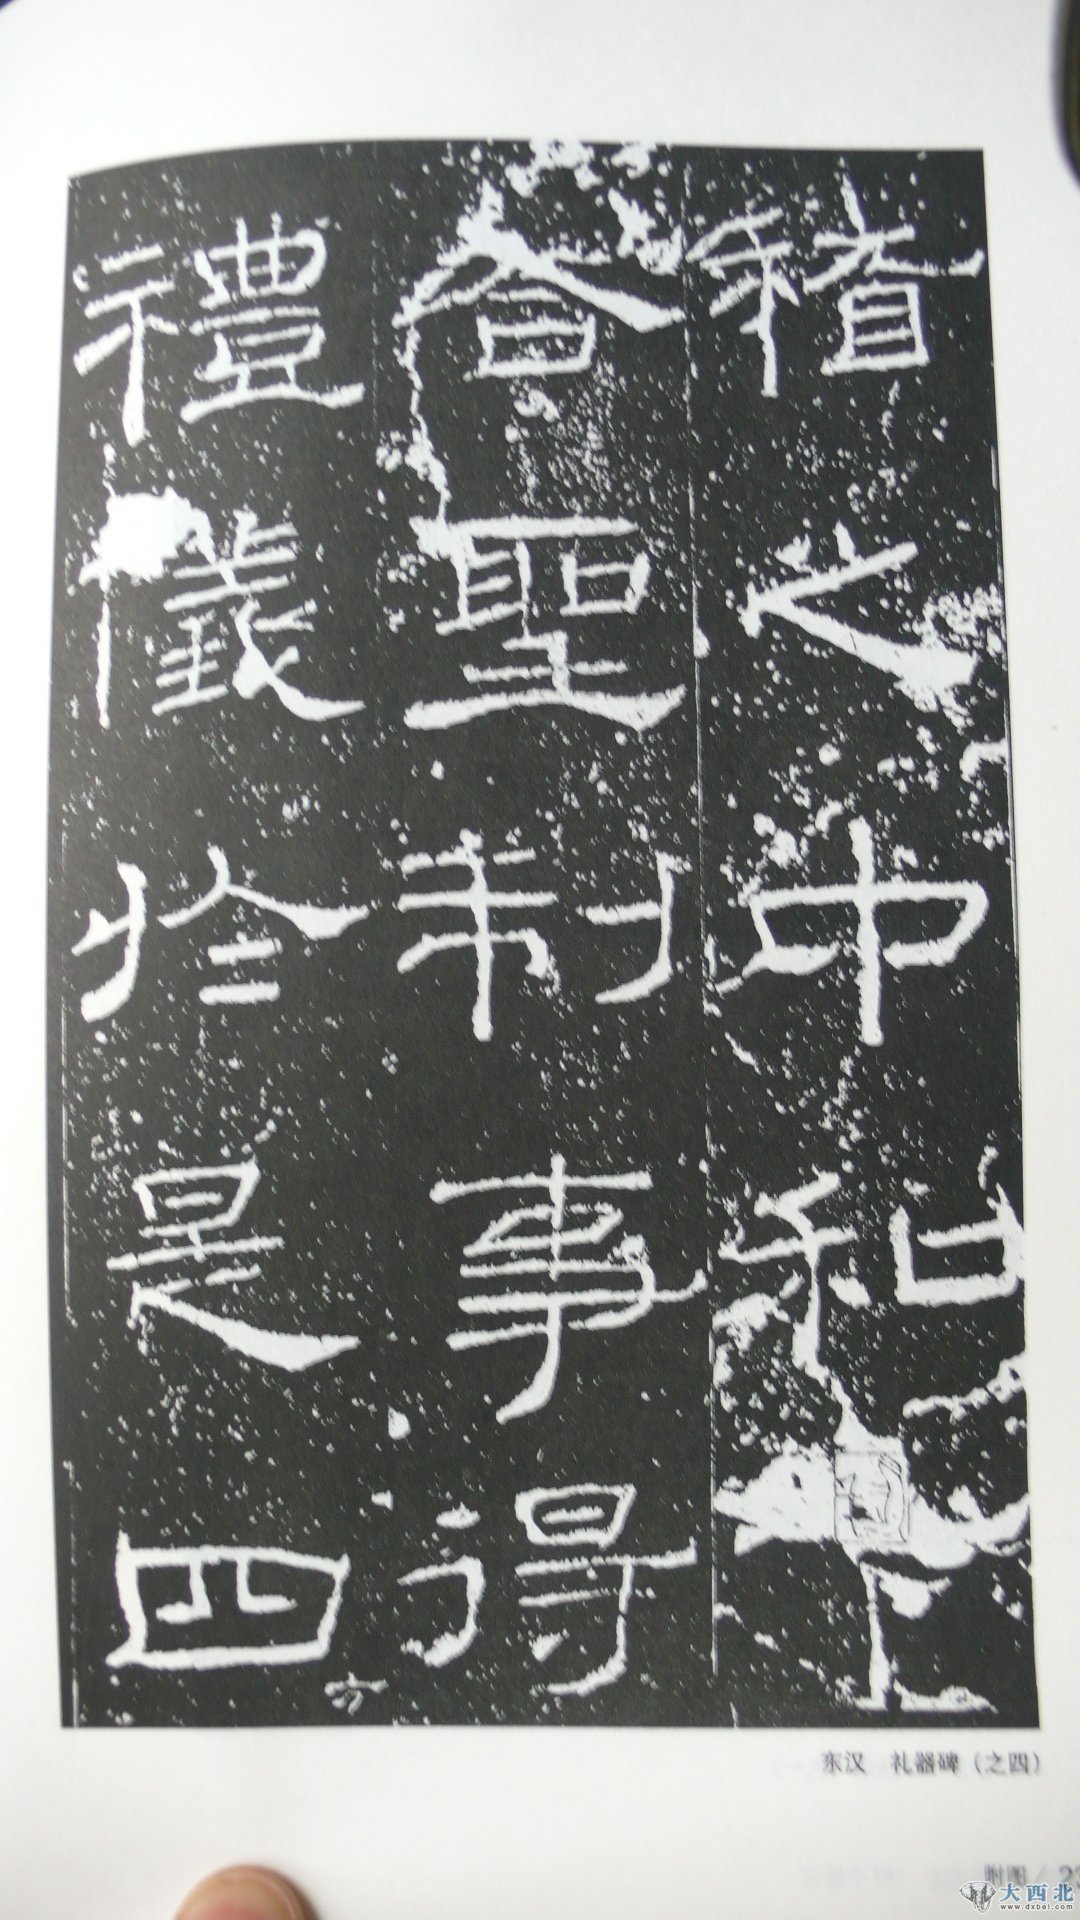 稽之中和下
合聖制事得
禮儀於是四
方
东汉 礼器碑（之四）
附图
大西北
www.dxbei.com